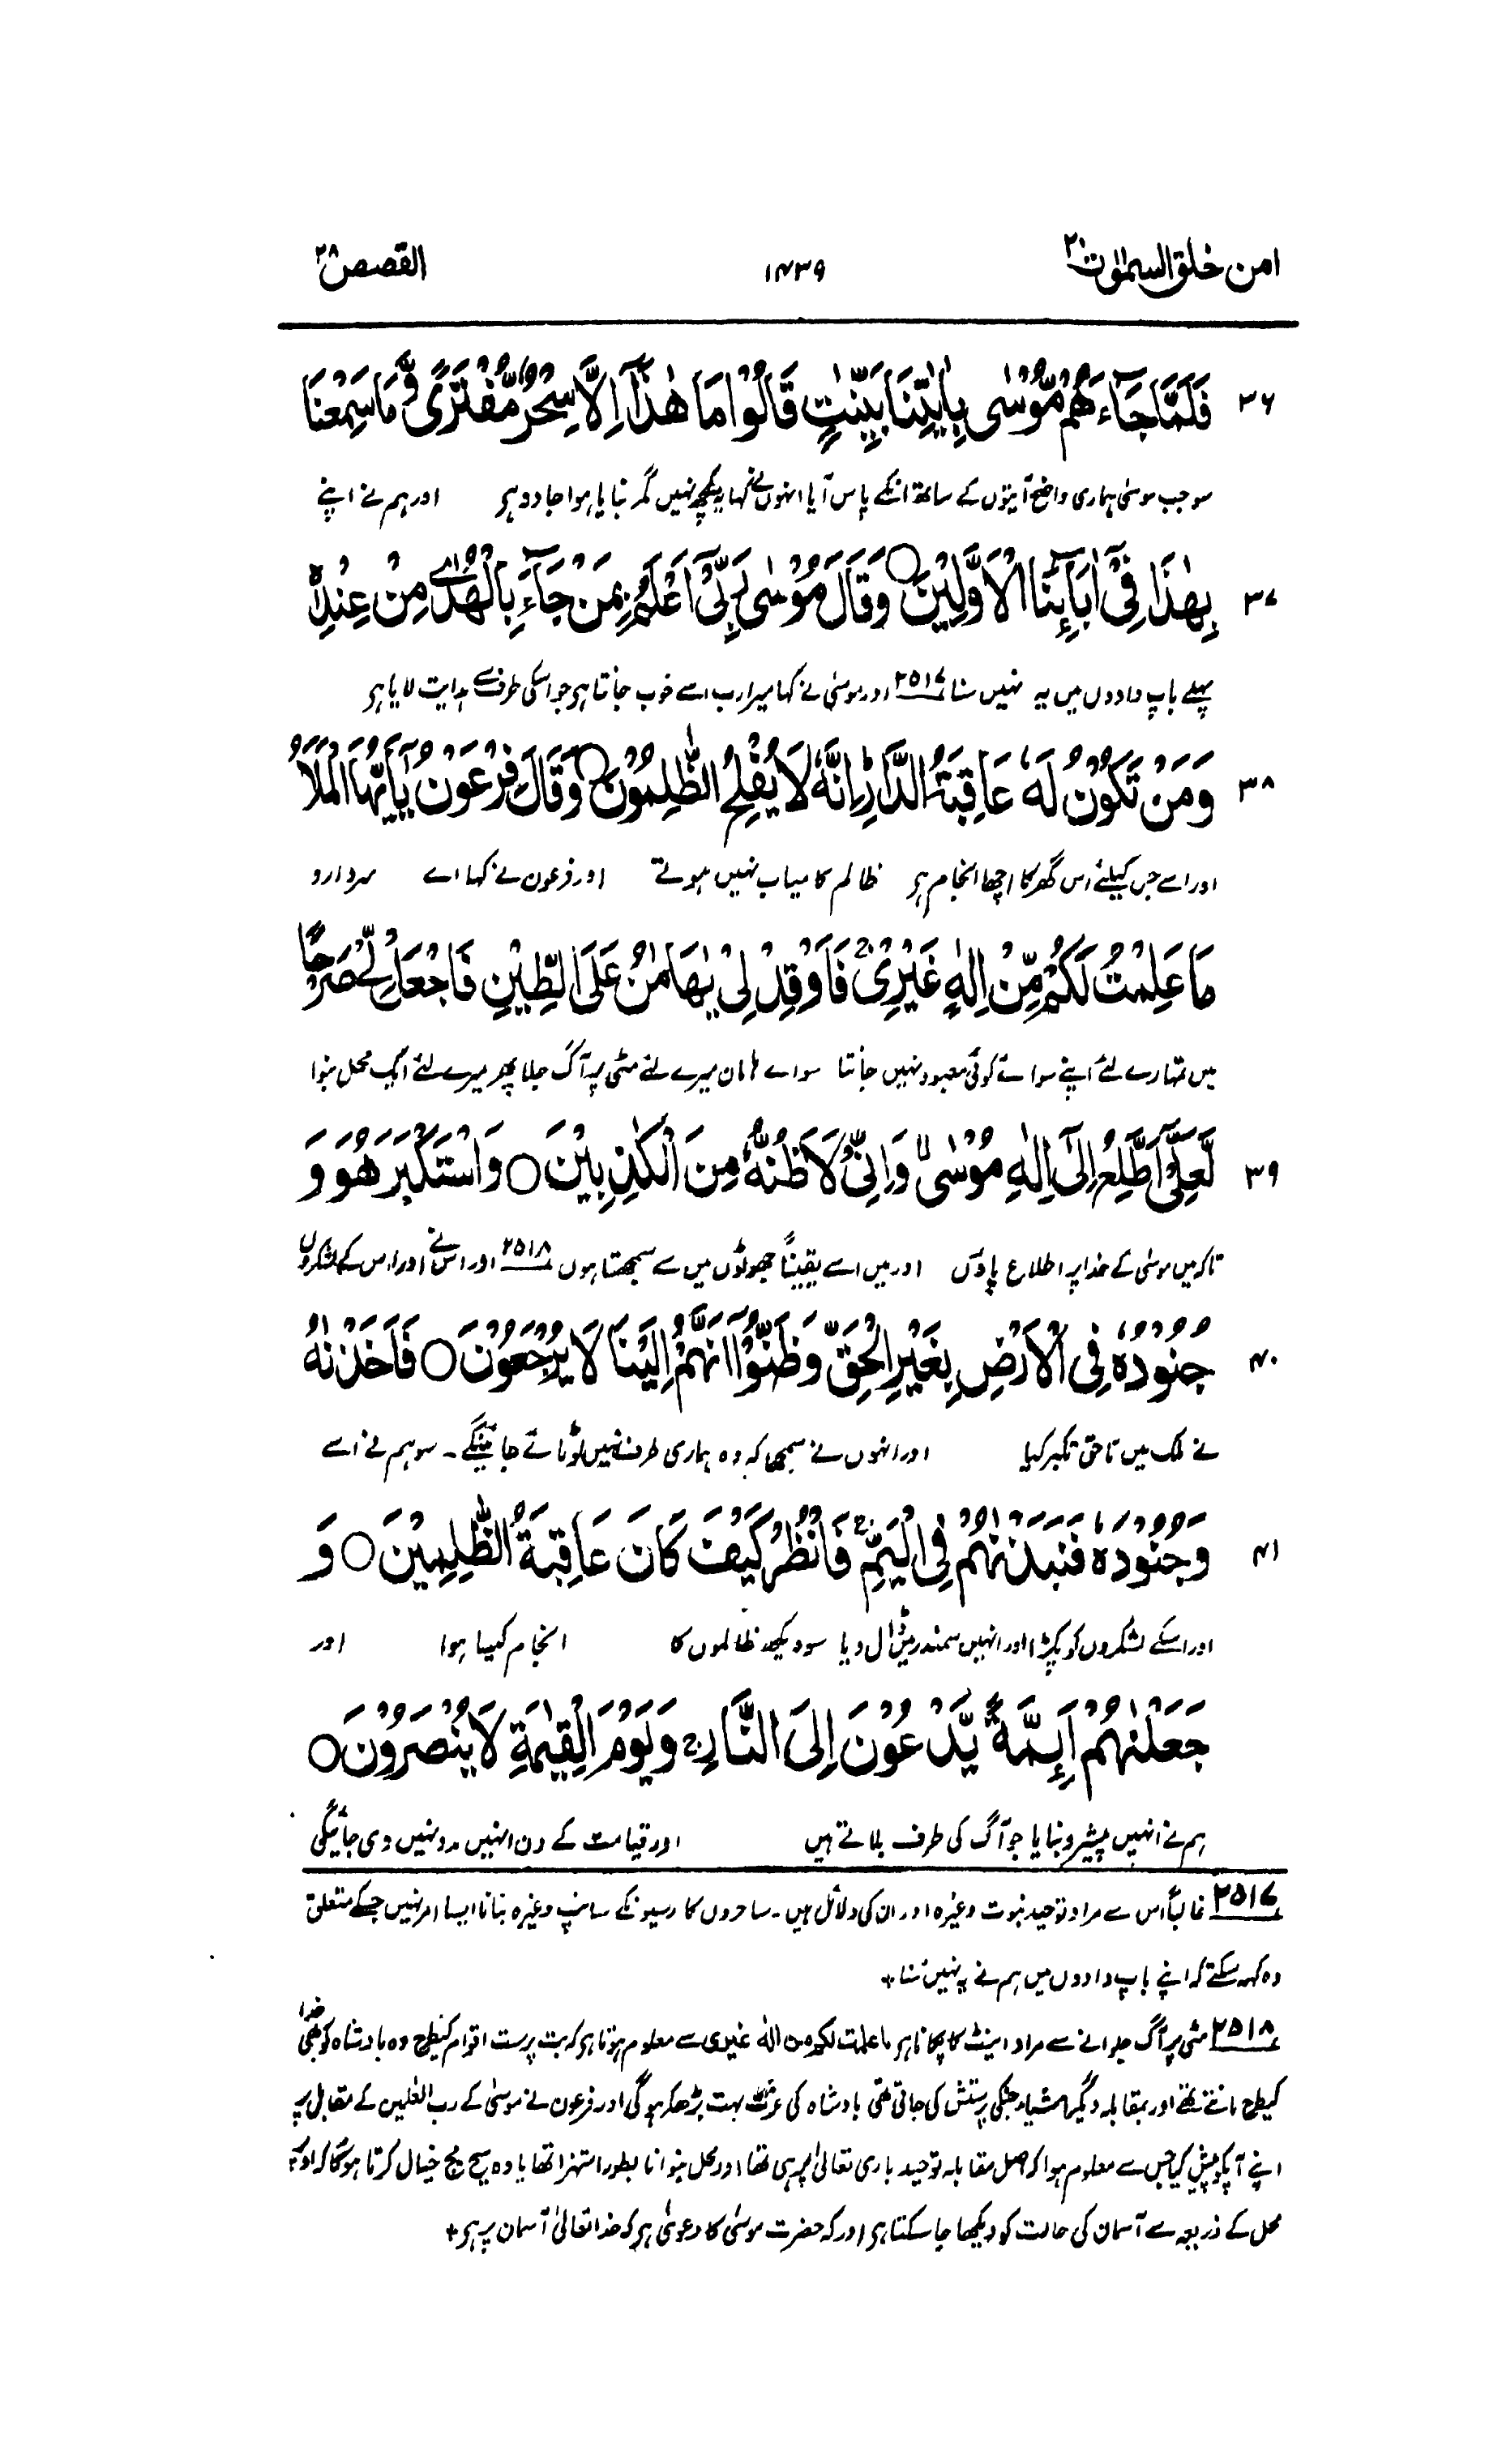 امن خلق السمٰوٰت ۲۰ ۱۴۳۹ القصص ۲۸
۳۶ فَلَمَّا جَآءَهُمْ مُّوْسٰى بِاٰيٰتِنَا بَيِّنٰتٍ قَالُوْا مَا هٰذَآ اِلَّا سِحْرٌ مُّفْتَرًى وَّ مَا سَمِعْنَا
سو جب موسیٰ ہماری واضح آیتوں کے ساتھ انکے پاس آیا انہوں نے کہا یہ کچھ نہیں مگر بنایا ہوا جادو ہر اور ہم نے اپنے
۳۷ بِهٰذَا فِيْٓ اٰبَآئِنَا الْاَوَّلِيْنَ ○ وَقَالَ مُوْسٰى رَبِّيْٓ اَعْلَمُ بِمَنْ جَآءَ بِالْهُدٰى مِنْ عِنْدِهٖ
پہلے باپ دادوں میں یہ نہیں سنا ۲۵۱۷ اور موسیٰ نے کہا میرا رب اسے خوب جانتا ہر جو اسکی طرف سے ہدایت لایا ہر
۳۸ وَمَنْ تَكُوْنُ لَهٗ عَاقِبَةُ الدَّارِ ؕ اِنَّهٗ لَا يُفْلِحُ الظّٰلِمُوْنَ ○ وَقَالَ فِرْعَوْنُ يٰٓاَيُّهَا الْمَلَاُ
اور اسے جس کیلئے اس گھر کا اچھا انجام ہر ظالم کامیاب نہیں ہوتے اور فرعون نے کہا اے سردارو
مَا عَلِمْتُ لَكُمْ مِّنْ اِلٰهٍ غَيْرِيْ ۚ فَاَوْقِدْ لِيْ يٰهَامٰنُ عَلَى الطِّيْنِ فَاجْعَلْ لِّيْ صَرْحًا
میں تمہارے لئے اپنے سوائے کوئی معبود نہیں جانتا سو اے ہامان میرے لئے مٹی پر آگ جلا پھر میرے لئے ایک محل بنوا
۳۹ لَّعَلِّيْٓ اَطَّلِعُ اِلٰٓى اِلٰهِ مُوْسٰى ۙ وَاِنِّيْ لَاَظُنُّهٗ مِنَ الْكٰذِبِيْنَ ○ وَاسْتَكْبَرَ هُوَ وَ
تاکہ میں موسیٰ کے خدا پر اطلاع پاؤں اور میں اسے یقیناً جھوٹوں میں سے سمجھتا ہوں ۲۵۱۸ اور اس نے اور اس کے لشکروں
۴۰ جُنُوْدُهٗ فِي الْاَرْضِ بِغَيْرِ الْحَقِّ وَظَنُّوْٓا اَنَّهُمْ اِلَيْنَا لَا يُرْجَعُوْنَ ○ فَاَخَذْنٰهُ
نے ملک میں ناحق تکبر کیا اور انہوں نے سمجھا کہ وہ ہماری طرف نہیں لوٹائے جائینگے۔ سو ہم نے اسے
۴۱ وَجُنُوْدَهٗ فَنَبَذْنٰهُمْ فِي الْيَمِّ ۚ فَانْظُرْ كَيْفَ كَانَ عَاقِبَةُ الظّٰلِمِيْنَ ○ وَ
اور اسکے لشکروں کو پکڑا اور انہیں سمندر میں ڈال دیا سو دیکھ ظالموں کا انجام کیسا ہوا اور
جَعَلْنٰهُمْ اَئِمَّةً يَّدْعُوْنَ اِلَى النَّارِ ۚ وَيَوْمَ الْقِيٰمَةِ لَا يُنْصَرُوْنَ ○
ہم نے انہیں پیشرو بنایا جو آگ کی طرف بلاتے ہیں اور قیامت کے دن انہیں مدد نہیں دی جائیگی
۲۵۱۷ غالباً اس سے مراد توحید نبوت وغیرہ اور ان کی دلائل ہیں۔ ساحروں کا رسیونکے سانپ وغیرہ بنانا ایسا امر نہیں جسکے متعلق
وہ کہہ سکتے کہ اپنے باپ دادوں میں ہم نے یہ نہیں سُنا +
۲۵۱۸ مٹی پر آگ جلوانے سے مراد اینٹ کا پکانا ہر ما علمت لکم من الٰہ غیری سے معلوم ہوتا ہر کہ بت پرست اقوام کیطرح وہ بادشاہ کو بھی خدا
کیطرح مانتے تھے اور بمقابلہ دیگر اشیاء جنکی پرستش کی جاتی تھی بادشاہ کی عزت بہت بڑھکر ہوگی اور فرعون نے موسیٰ کے رب العٰلمین کے مقابل پر
اپنے آپکو پیش کیا جس سے معلوم ہوا کہ اصل مقابلہ توحید باری تعالیٰ پر ہی تھا اور محل بنوانا بطور استہزا تھا یا وہ سچ مچ خیال کرتا ہوگا کہ اونچے
محل کے ذریعہ سے آسمان کی حالت کو دیکھا جا سکتا ہر اور کہ حضرت موسیٰ کا دعویٰ ہر کہ خدا تعالیٰ آسمان پر ہر +